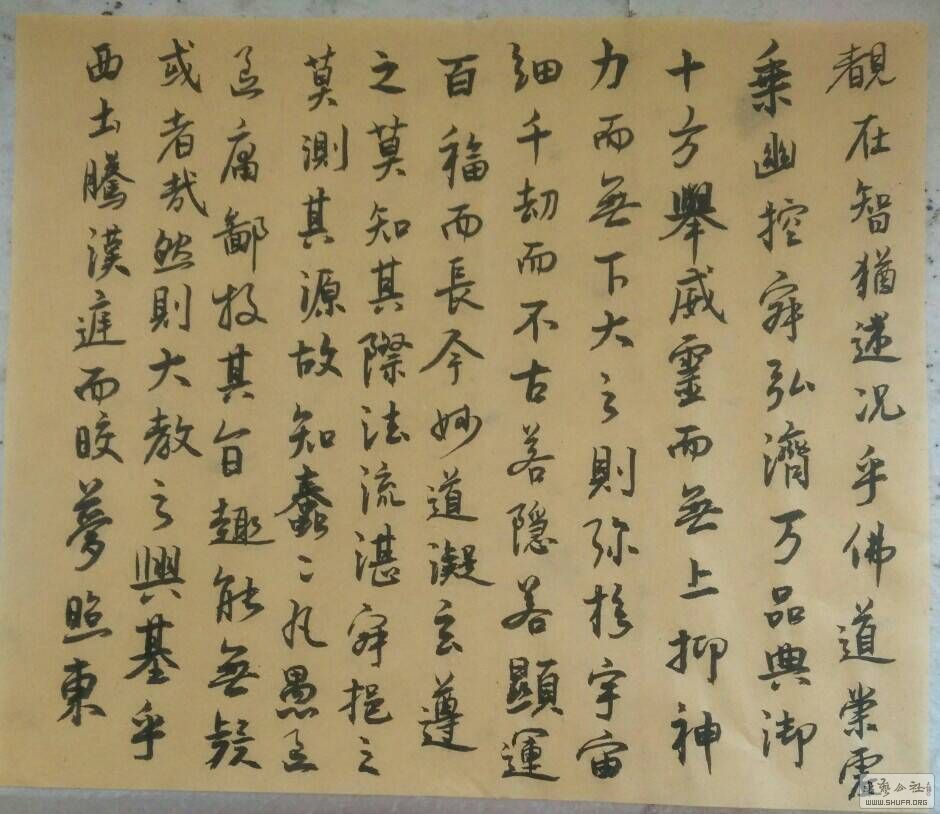 覩在智猶迷况乎佛道崇虛
乗幽控寂弘濟万品典御
十方舉威靈而無上抑神
力而無下大之則弥於宇宙
細千劫而不古若隱若顯運
百福而長今妙道凝玄遵
之莫知其際法流湛寂挹之
莫測其源故知蠢〻凡愚區
區庸鄙投其旨趣能無疑
或者哉然則大教之興基乎
西土騰漢庭而晈夢照東
WWW.SHUFA.ORG